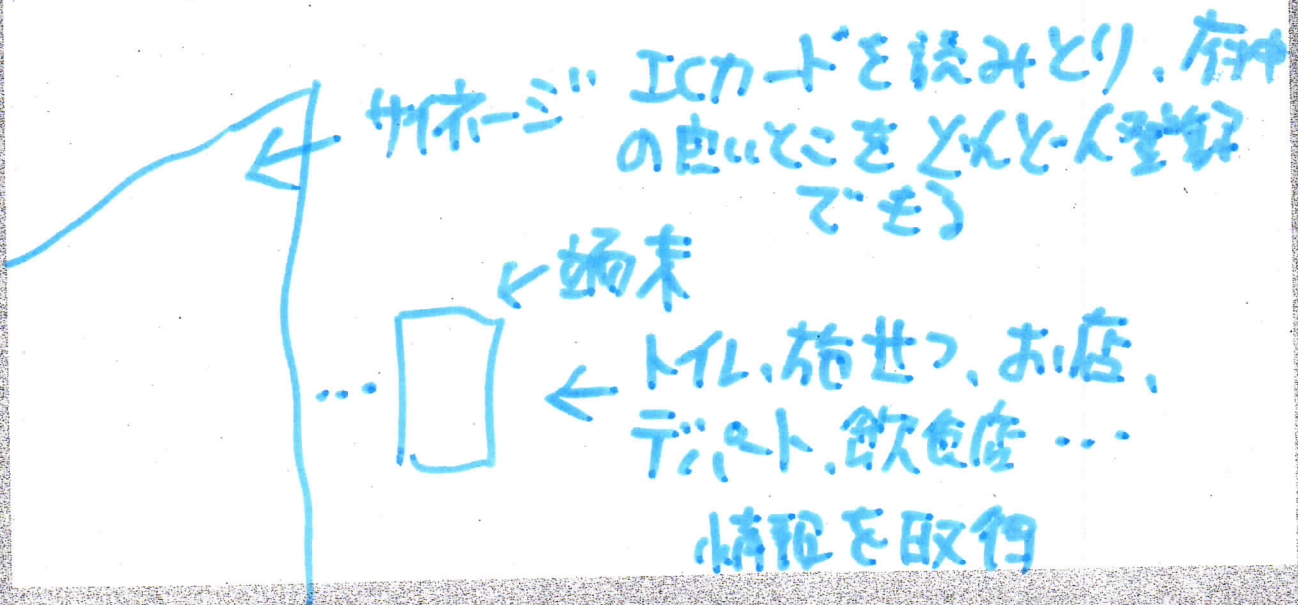 サイネージ
ICカードを読みとり、府中
の良いとこをどんどん登録
できる
端末
トイレ、施せつ、お店、
デパート、飲食店…
情報を取得